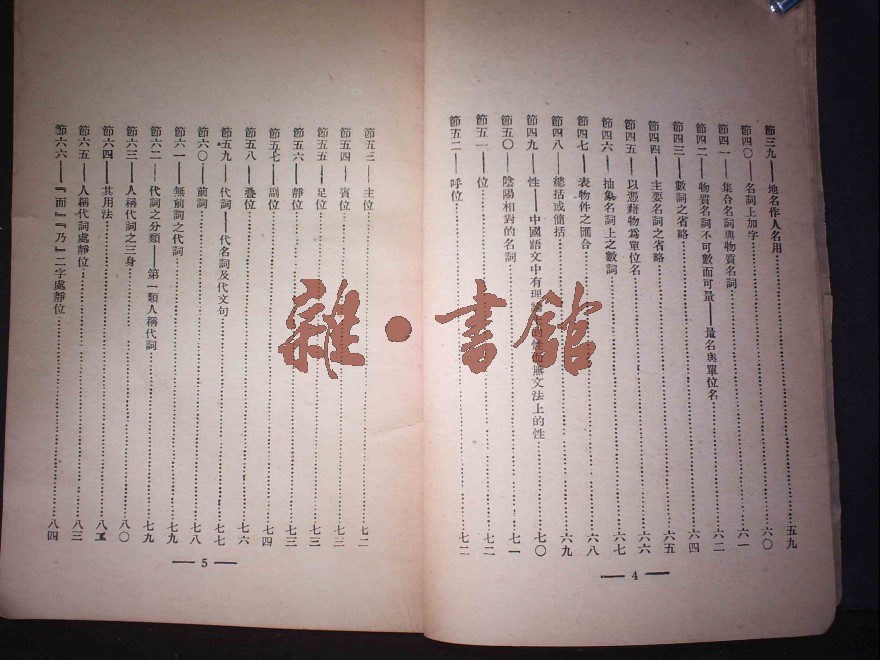 節三九——地名作人名用……五九
節四〇——名詞上加字……六〇
節四一——集合名詞與物質名詞……六一
節四二——物質名詞不可數而可量——量名與單位名……六二
節四三——數詞之省略……六四
節四四——主要名詞之省略……六五
節四五——以憑藉物爲單位名……六六
節四六——抽象名詞上之數詞……六七
節四七——表物件之匯合……六八
節四八——總括或簡括……六九
節四九——性——中國語文中有理 文法上的性……七〇
節五〇——陰陽相對的名詞……七一
節五一——位……七二
節五二——呼位……七二
— 4 —
節五三——主位……七二
節五四——賓位……七三
節五五——足位……七三
節五六——靜位……七三
節五七——副位……七四
節五八——疊位……七六
節五九——代詞——代名詞及代文句……七七
節六〇——前詞……七八
節六一——無前詞之代詞……七九
節六二——代詞之分類——第一類人稱代詞……七九
節六三——人稱代詞之三身……八〇
節六四——其用法……八
節六五——人稱代詞處靜位……八三
節六六——『而』『乃』二字處靜位……八四
— 5 —
雜·書館